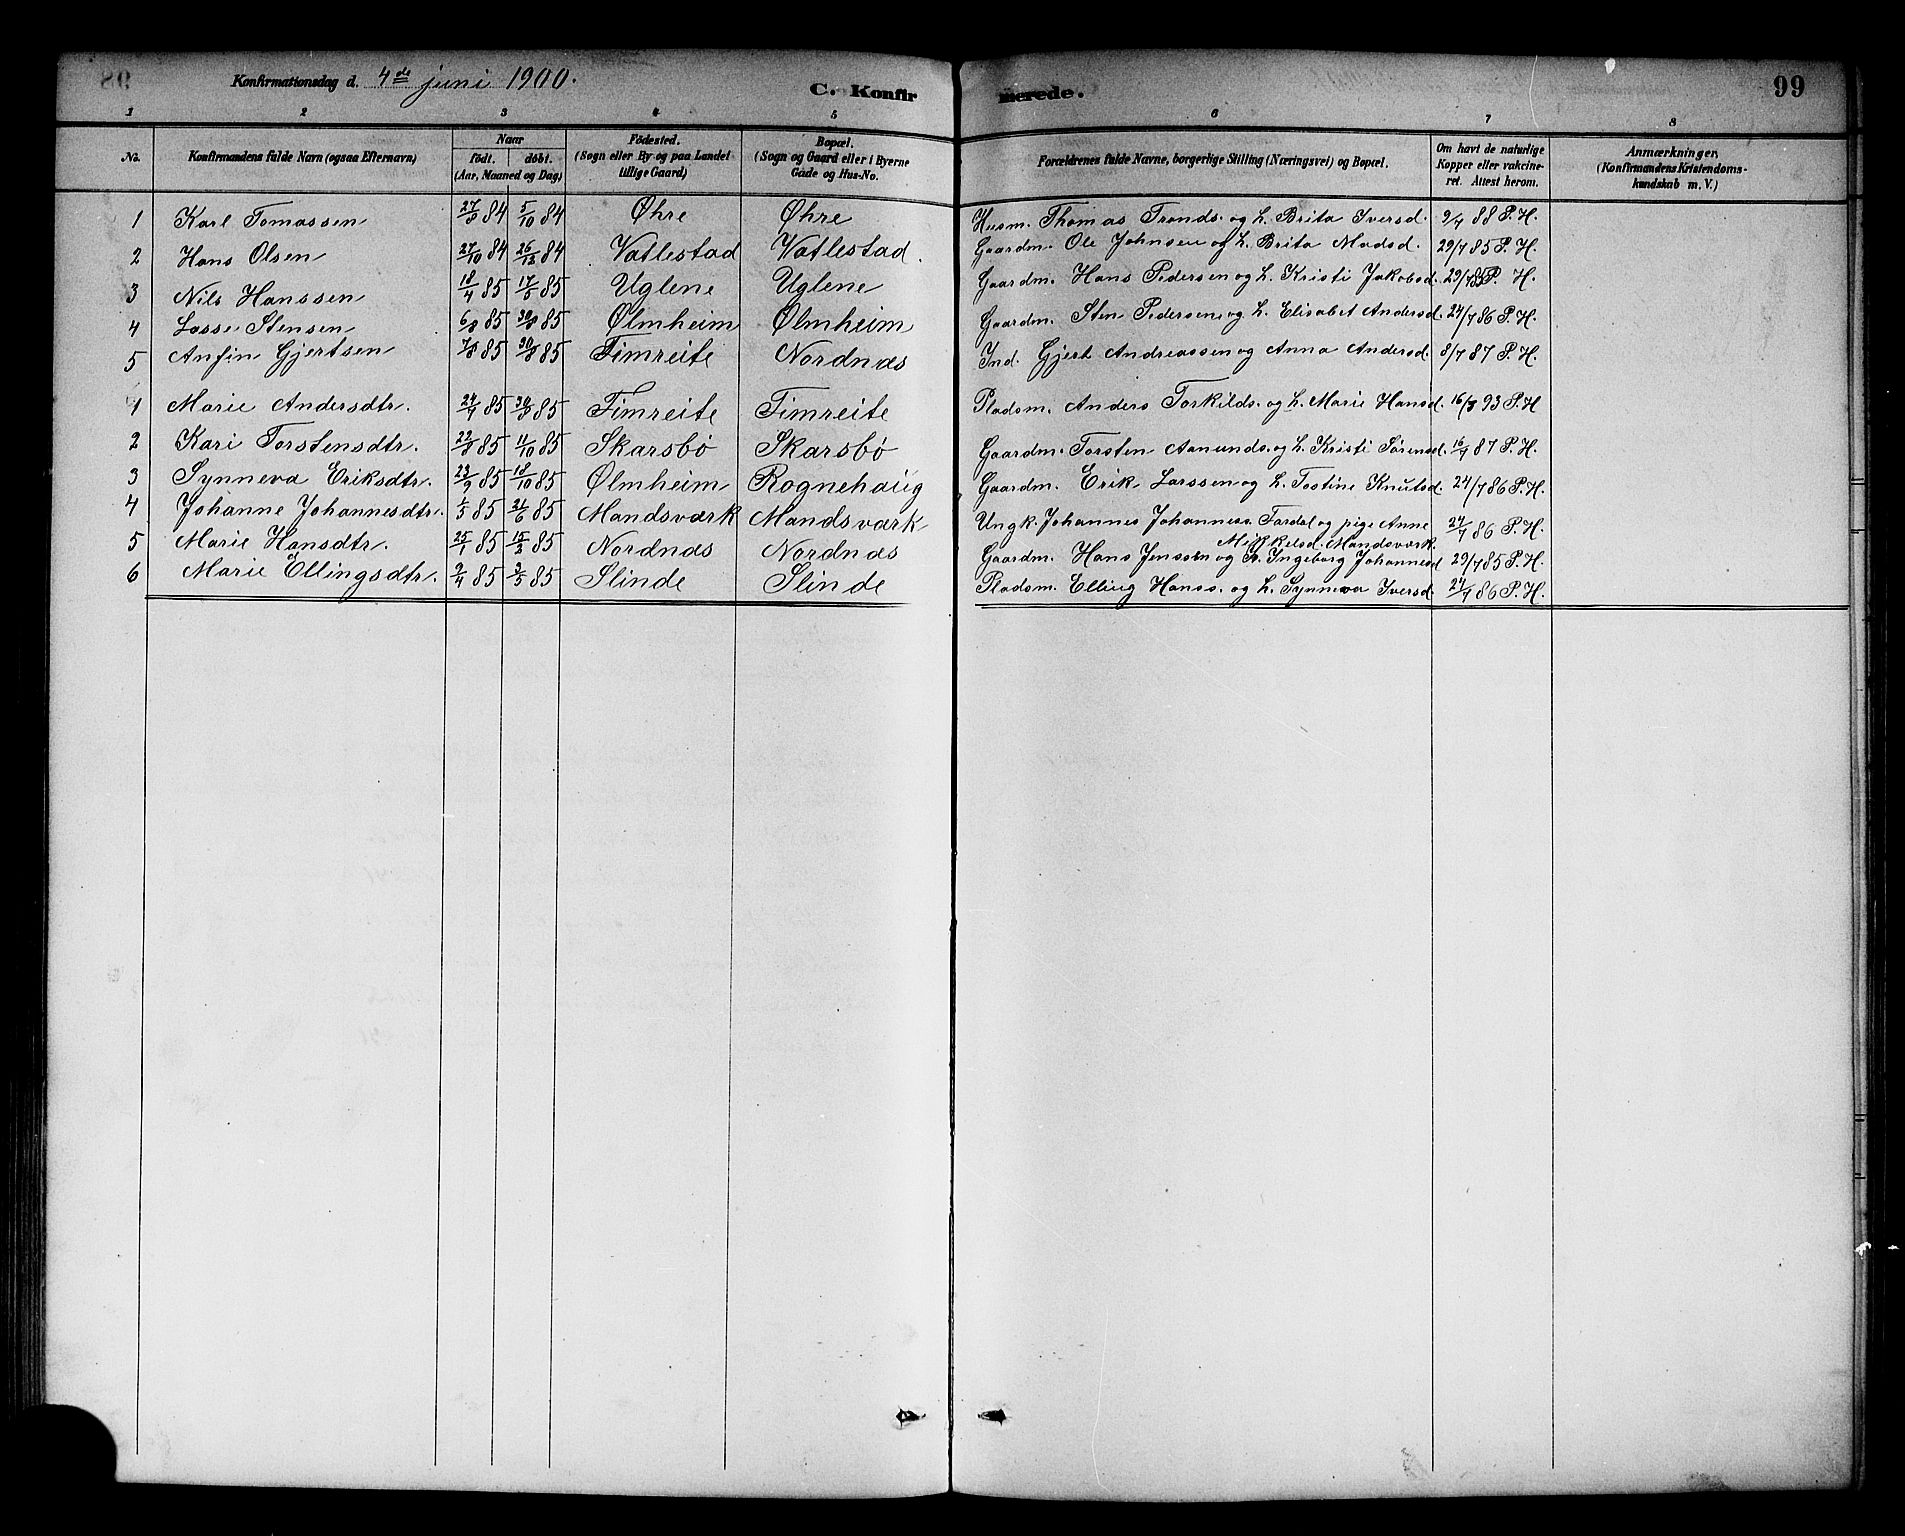 Konfirmationsdag d. 4de juni 1900. C. Konfirmerede. 99
1 2 3 4 5 6 7 8
No. Konfirmandens fulde Navn (ogsaa Efternavn) Naar født. døbt. (Aar, Maaned og Dag) Fødested. (Sogn eller By og paa Landet tillige Gaard) Bopæl. (Sogn og Gaard eller i Byerne Gade og Hus-No. Forældrenes fulde Navne, borgerlige Stilling (Næringsvei) og Bopæl. Om havt de naturlige Kopper eller vakcineret. Attest herom. Anmærkninger, (Konfirmandens Kristendomskundskab m. V.)
1 Karl Tomassen 27/9 84 5/10 84 Øhre Øhre Husm. Thomas Tronds. og h. Brita Iversd. 9/7 88 P. H.
2 Hans Olsen 27/10 84 26/12 84 Vatlestad Vatlestad Gaardm. Ole Johnsen og h. Brita Madsd. 29/7 85 P. H.
3 Nils Hanssen 18/4 85 17/5 85 Uglene Uglene Gaardm. Hans Pedersen og h. Kristi Jakobsd. 29/7 85 P. H.
4 Lasse Stensen 6/8 85 30/8 85 Ølmheim Ølmheim Gaardm. Sten Pedersen og h. Elisabet Andersd. 24/7 86 P. H.
5 Anfin Gjertsen 7/8 85 30/8 85 Fimreite Nordnæs Ind. Gjert Andreassen og Anna Andersd. 8/7 87 P. H.
1 Marie Andersdtr. 24/7 85 30/8 85 Fimreite Fimreite Pladsm. Anders Torkilds. og h. Marie Hansd. 16/8 93 P. H
2 Kari Torstensdtr. 22/8 85 11/10 85 Skarsbø Skarsbø Gaardm. Torsten Aamunds. og h. Kristi Sørensd. 16/7 87 P. H.
3 Synneva Eriksdtr. 23/9 85 18/10 85 Ølmheim Rognehaug Gaardm. Erik Larssen og h. Tostine Knutsd. 24/7 86 P. H.
4 Johanne Johannesdtr. 1/5 85 21/6 85 Mandsværk Mandsværk Ungk. Johannes Johanness. Fardal og pige Anne 24/7 86 P. H.
Mikkelsd. Mandsværk.
5 Marie Hansdtr. 25/1 85 15/2 85 Nordnæs Nordnæs Gaardm. Hans Jenssen og h. Ingeborg Johannesd 29/7 85 P. H.
6 Marie Ellingsdtr. 9/4 85 3/5 85 Slinde Slinde Pladsm. Elling Hanss. og h. Synneva Iversd. 24/7 86 P. H.